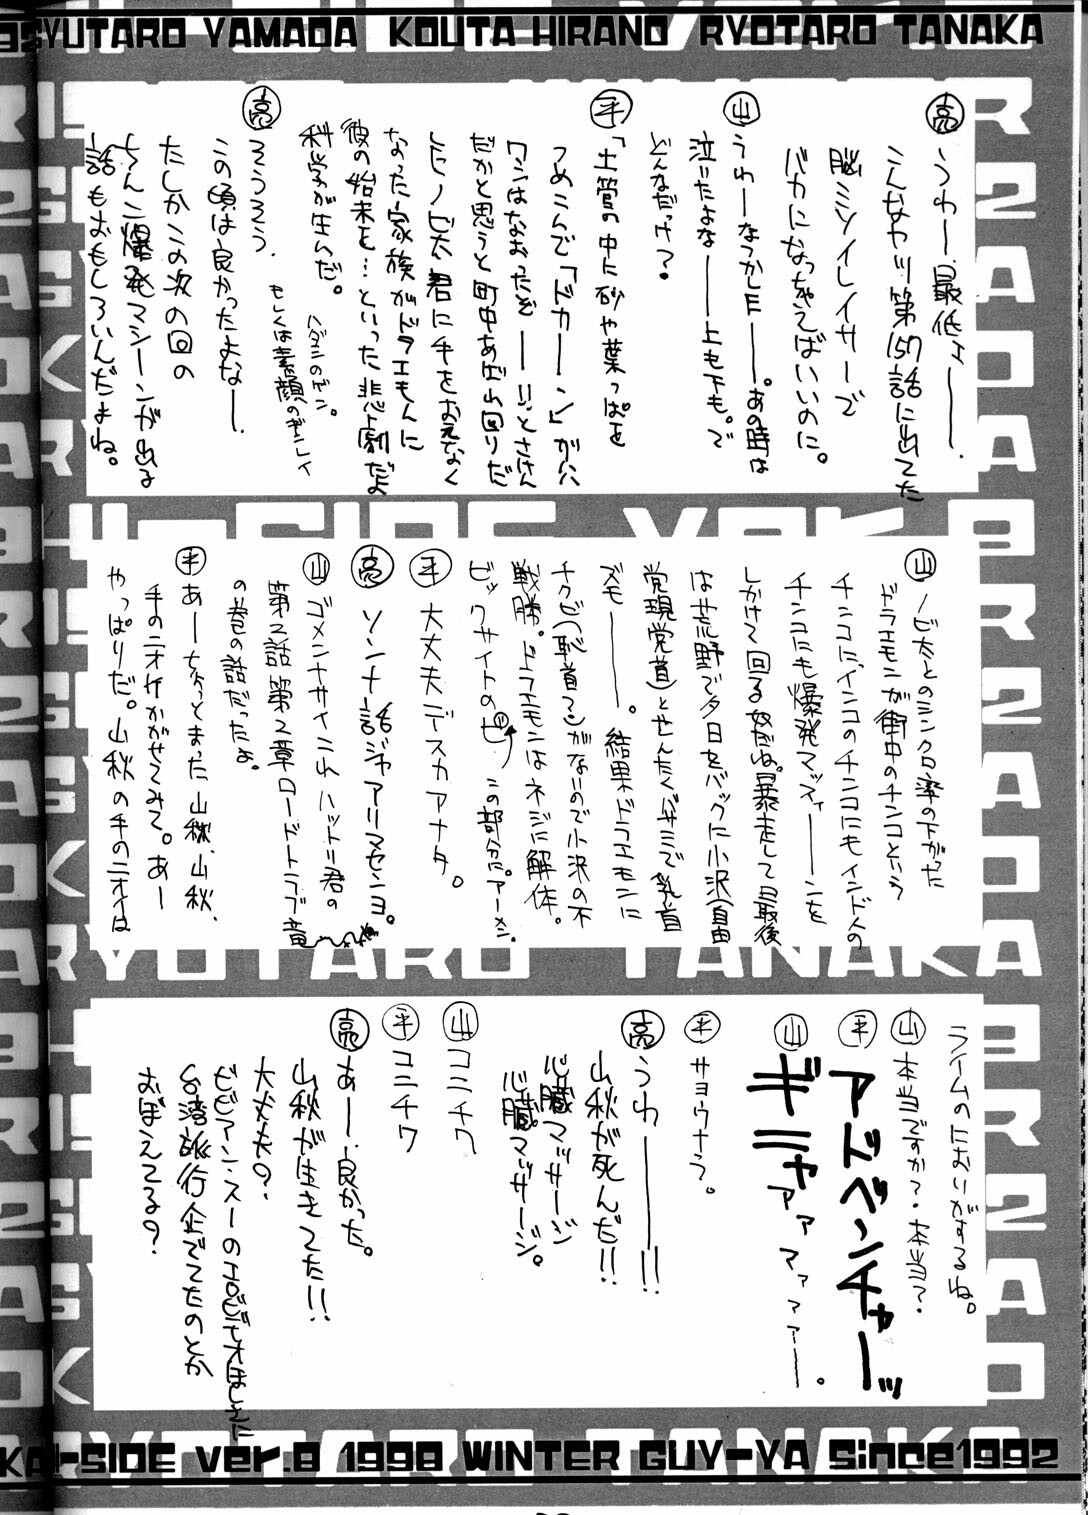 YUTARO YAMADA KOUTA HIRANO RYOTARO TANAKA
亮 うわー、最低よー――。
こんなヤツ第157話に出てた
脳ミソイレイサーで
バカになっちゃえばいいのに。
山 うわーなつかしEー。あの時は
泣いたよなー――上も下も。で
どんなだっけ?
平 「土管の中に砂や葉っぱを
つめこんで「ドカーーン」がハハ
ワシはなおったぞーー!!っとさけん
だかと思うと町中あばれ回りだ
したノビ太君に手をおえなく
なった家族がドラエもんに
彼の始末を…といった悲劇だよ
科学が生んだ。
ハダシのゲン。
もしくは素顔のギンレイ
亮 そうそう、
この頃は良かったよなー、
たしかこの次の回の
ちんこ爆発マシーンが出る
話もおもしろいんだよね。
山 ノビ太とのシンクロ率の下がった
ドラエモンが街中のチンコという
チンコに、インコのチンコにもインド人の
チンコにも爆発マッスィーーンを
しかけて回る奴だね。暴走して最後
は荒野で夕日をバックに小沢(自由
党現党首)とせんたくバサミで乳首
ズモーー。結果ドラエモンに
チクビ(恥首?)がないので小沢の不
戦勝。ドラエモンはネジに解体。
ビックサイトのビ この部分に。アーメン。
平 大丈夫デスカアナタ。
亮 ソンナ話ジャアリマセンヨ。
山 ゴメンナサイこれハットリ君の
第2話第2章ロードトラブ竜
の巻の話だったよ。
平 あーちょっとまった山秋、山秋、
手のニオイかがせてみて。あー
やっぱりだ。山秋の手のニオイは
ライムのにおいがするね。
山 本当ですか?本当?
平 アドベンチャーッ
山 ギニャァァァマァァァー。
平 サヨウナラ。
亮 うわーーー!!
山秋が死んだ!!
心臓マッサージ
心臓マッサージ。
山 コニチワ
平 コニチワ
亮 あー、良かった。
山秋が生きてた!!
大丈夫?
ビビアン・スーのエロビデオほしさに
台湾旅行企ててたのとか
おぼえてる?
KAI-SIDE ver.8 1998 WINTER GUY-YA Since1992